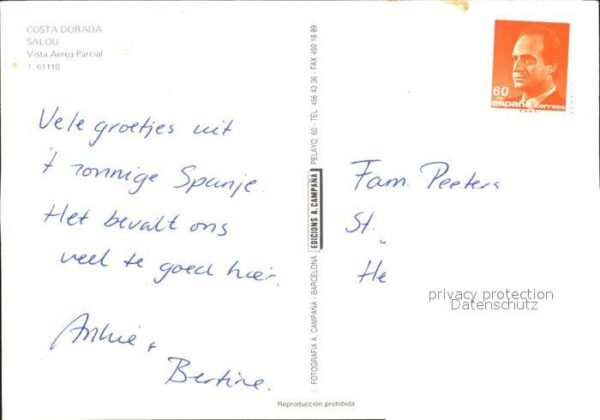 COSTA DORADA
SALOU
Vista Aerea Parcial
T-61110
Vele groetjes uit
't zonnige Spanje.
Het bevalt ons
veel te goed hier.
Bertine.
EDICIONS A. CAMPAÑA
PELAYO, 60 - TEL. 456 43 36 - FAX 450 18 89
FOTOGRAFIA A. CAMPAÑA - BARCELONA
Reproducción prohibida
60
PTA
españa correos
Fam. Peeters
St.
He
privacy protection
Datenschutz